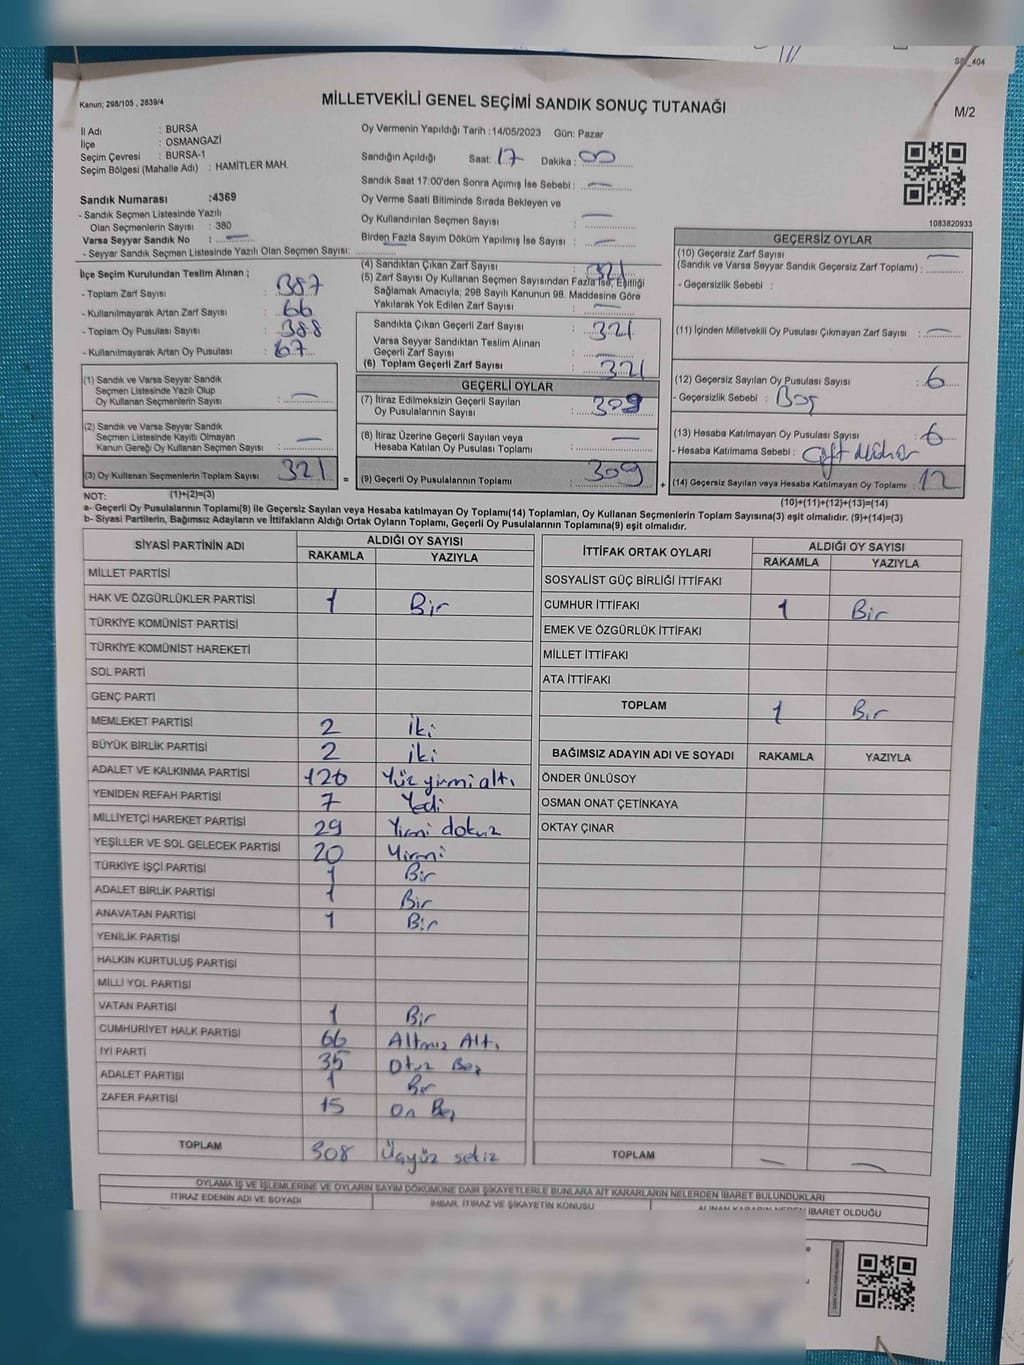 Kanun; 298/105 , 2839/4
MİLLETVEKİLİ GENEL SEÇİMİ SANDIK SONUÇ TUTANAĞI
M/2
İl Adı : BURSA
İlçe : OSMANGAZİ
Seçim Çevresi : BURSA-1
Seçim Bölgesi (Mahalle Adı) : HAMİTLER MAH.
Sandık Numarası :4369
- Sandık Seçmen Listesinde Yazılı
Olan Seçmenlerin Sayısı : 380
Varsa Seyyar Sandık No : —
- Seyyar Sandık Seçmen Listesinde Yazılı Olan Seçmen Sayısı:
Oy Vermenin Yapıldığı Tarih : 14/05/2023 Gün: Pazar
Sandığın Açıldığı Saat: 17 Dakika : 00
Sandık Saat 17:00'den Sonra Açımış İse Sebebi : —
Oy Verme Saati Bitiminde Sırada Bekleyen ve
Oy Kullandırılan Seçmen Sayısı : —
Birden Fazla Sayım Döküm Yapılmış İse Sayısı : —
1083820933
İlçe Seçim Kurulundan Teslim Alınan ;
- Toplam Zarf Sayısı : 387
- Kullanılmayarak Artan Zarf Sayısı : 66
- Toplam Oy Pusulası Sayısı : 388
- Kullanılmayarak Artan Oy Pusulası : 67
(1) Sandık ve Varsa Seyyar Sandık
Seçmen Listesinde Yazılı Olup
Oy Kullanan Seçmenlerin Sayısı : —
(2) Sandık ve Varsa Seyyar Sandık
Seçmen Listesinde Kayıtlı Olmayan
Kanun Gereği Oy Kullanan Seçmen Sayısı : —
(3) Oy Kullanan Seçmenlerin Toplam Sayısı 321 =
(1)+(2)=(3)
(4) Sandıktan Çıkan Zarf Sayısı : 321
(5) Zarf Sayısı Oy Kullanan Seçmen Sayısından Fazla İse, Eşitliği
Sağlamak Amacıyla; 298 Sayılı Kanunun 98. Maddesine Göre
Yakılarak Yok Edilen Zarf Sayısı : —
Sandıkta Çıkan Geçerli Zarf Sayısı : 321
Varsa Seyyar Sandıktan Teslim Alınan
Geçerli Zarf Sayısı : —
(6) Toplam Geçerli Zarf Sayısı : 321
GEÇERLİ OYLAR
(7) İtiraz Edilmeksizin Geçerli Sayılan
Oy Pusulalarının Sayısı : 309
(8) İtiraz Üzerine Geçerli Sayılan veya
Hesaba Katılan Oy Pusulası Toplamı : —
(9) Geçerli Oy Pusulalarının Toplamı : 309 +
GEÇERSİZ OYLAR
(10) Geçersiz Zarf Sayısı : —
(Sandık ve Varsa Seyyar Sandık Geçersiz Zarf Toplamı) :
- Geçersizlik Sebebi :
(11) İçinden Milletvekili Oy Pusulası Çıkmayan Zarf Sayısı : —
(12) Geçersiz Sayılan Oy Pusulası Sayısı : 6
- Geçersizlik Sebebi : Boş
(13) Hesaba Katılmayan Oy Pusulası Sayısı : 6
- Hesaba Katılmama Sebebi : Çift Mühür
(14) Geçersiz Sayılan veya Hesaba Katılmayan Oy Toplamı : 12
(10)+(11)+(12)+(13)=(14)
NOT:
a- Geçerli Oy Pusulalarının Toplamı(9) ile Geçersiz Sayılan veya Hesaba katılmayan Oy Toplamı(14) Toplamları, Oy Kullanan Seçmenlerin Toplam Sayısına(3) eşit olmalıdır. (9)+(14)=(3)
b- Siyasi Partilerin, Bağımsız Adayların ve İttifakların Aldığı Ortak Oyların Toplamı, Geçerli Oy Pusulalarının Toplamına(9) eşit olmalıdır.
SİYASİ PARTİNİN ADI ALDIĞI OY SAYISI
RAKAMLA YAZIYLA
MİLLET PARTİSİ
HAK VE ÖZGÜRLÜKLER PARTİSİ 1 Bir
TÜRKİYE KOMÜNİST PARTİSİ
TÜRKİYE KOMÜNİST HAREKETİ
SOL PARTİ
GENÇ PARTİ
MEMLEKET PARTİSİ 2 iki
BÜYÜK BİRLİK PARTİSİ 2 iki
ADALET VE KALKINMA PARTİSİ 126 Yüz yirmi altı
YENİDEN REFAH PARTİSİ 7 Yedi
MİLLİYETÇİ HAREKET PARTİSİ 29 Yirmi dokuz
YEŞİLLER VE SOL GELECEK PARTİSİ 20 Yirmi
TÜRKİYE İŞÇİ PARTİSİ 1 Bir
ADALET BİRLİK PARTİSİ 1 Bir
ANAVATAN PARTİSİ 1 Bir
YENİLİK PARTİSİ
HALKIN KURTULUŞ PARTİSİ
MİLLİ YOL PARTİSİ
VATAN PARTİSİ 1 Bir
CUMHURİYET HALK PARTİSİ 66 Altmış Altı
İYİ PARTİ 35 Otuz Beş
ADALET PARTİSİ 1 Bir
ZAFER PARTİSİ 15 On Beş
TOPLAM 308 Üçyüz sekiz
İTTİFAK ORTAK OYLARI ALDIĞI OY SAYISI
RAKAMLA YAZIYLA
SOSYALİST GÜÇ BİRLİĞİ İTTİFAKI
CUMHUR İTTİFAKI 1 Bir
EMEK VE ÖZGÜRLÜK İTTİFAKI
MİLLET İTTİFAKI
ATA İTTİFAKI
TOPLAM 1 Bir
BAĞIMSIZ ADAYIN ADI VE SOYADI RAKAMLA YAZIYLA
ÖNDER ÜNLÜSOY
OSMAN ONAT ÇETİNKAYA
OKTAY ÇINAR
TOPLAM — —
OYLAMA İŞ VE İŞLEMLERİNE VE OYLARIN SAYIM DÖKÜMÜNE DAİR ŞİKAYETLERLE BUNLARA AİT KARARLARIN NELERDEN İBARET BULUNDUKLARI
İTİRAZ EDENİN ADI VE SOYADI İHBAR, İTİRAZ VE ŞİKAYETİN KONUSU ALINAN KARARIN NEDEN İBARET OLDUĞU